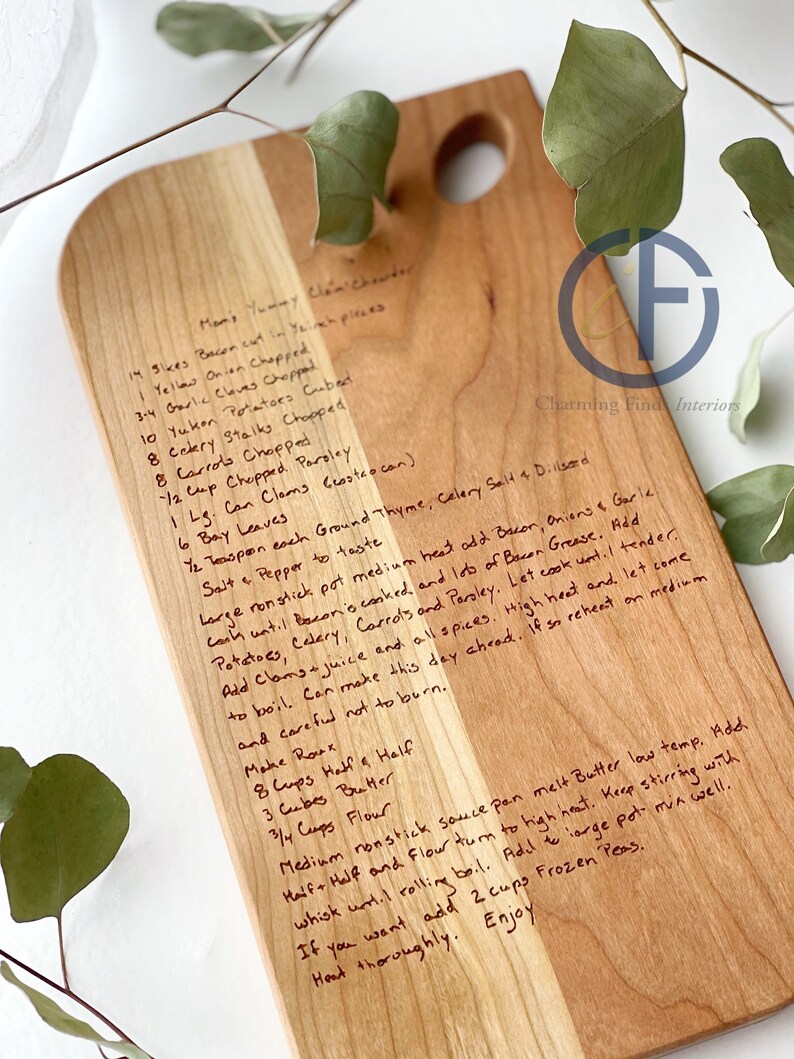 Mom's Yummy Clam Chowder
14 Slices Bacon cut in ½ inch pieces
1 Yellow Onion Chopped
3-4 Garlic Cloves Chopped
10 Yukon Potatoes Cubed
8 Celery Stalks Chopped
8 Carrots Chopped
½ Cup Chopped Parsley
1 Lg. Can Clams (costco can)
6 Bay Leaves
½ Teaspoon each Ground Thyme, Celery Salt & Dillseed
Salt & Pepper to taste
Large nonstick pot medium heat add Bacon, Onions & Garlic.
Cook until Bacon is cooked and lots of Bacon Grease. Add
Potatoes, Celery, Carrots and Parsley. Let cook until tender.
Add Clams + juice and all spices. High heat and let come
to boil. Can make this day ahead. If so reheat on medium
and careful not to burn.
Make Roux
8 Cups Half & Half
3 Cubes Butter
3/4 Cups Flour
Medium nonstick sauce pan melt Butter low temp. Add
Half + Half and Flour turn to high heat. Keep stirring with
whisk until rolling boil. Add to large pot mix well.
If you want add 2 cups Frozen Peas.
Heat thoroughly. Enjoy
CiF
Charming Finds Interiors